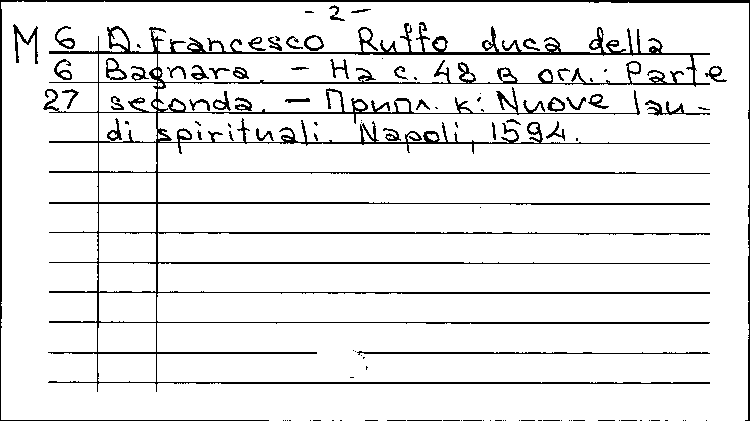 - 2 -
M 6 D. Francesco Ruffo duca della
6 Bagnara. - На с. 48 в огл.: Parte
27 seconda. - Припл. к: Nuove lau-
di spirituali. Napoli, 1594.